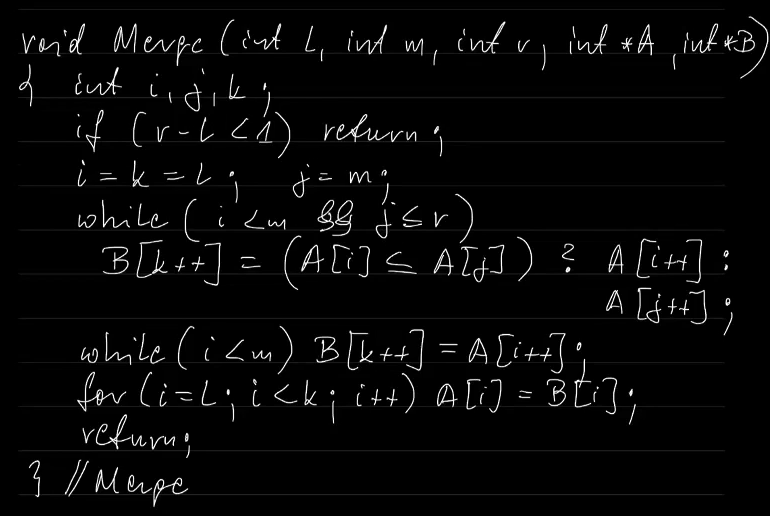 void Merge (int L, int m, int r, int *A, int *B)
{ int i, j, k;
if (r-L<1) return;
i = k = L; j = m;
while (i<m && j≤r)
B[k++] = (A[i] ≤ A[j]) ? A[i++] :
A[j++];
while (i<m) B[k++] = A[i++];
for (i=L; i<k; i++) A[i] = B[i];
return;
} //Merge